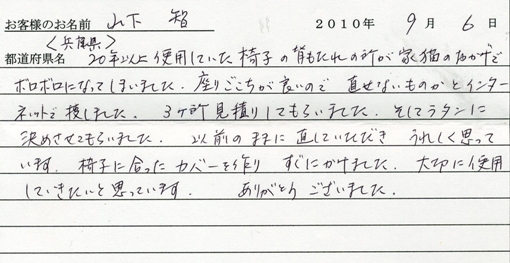 お客様のお名前 山下 智 2010年 9月 6日
<兵庫県>
都道府県名 20年以上使用していた椅子の背もたれの所が家猫のおかげで
ボロボロになってしまいました。座りごこちが良いので 直せないものかとインター
ネットで捜しました。3ヶ所見積りしてもらいました。そしてラタンに
決めさせてもらいました。以前のままに直していただき うれしく思って
います。椅子に合ったカバーを作り すぐにかけました。大切に使用
していきたいと思っています。 ありがとうございました。